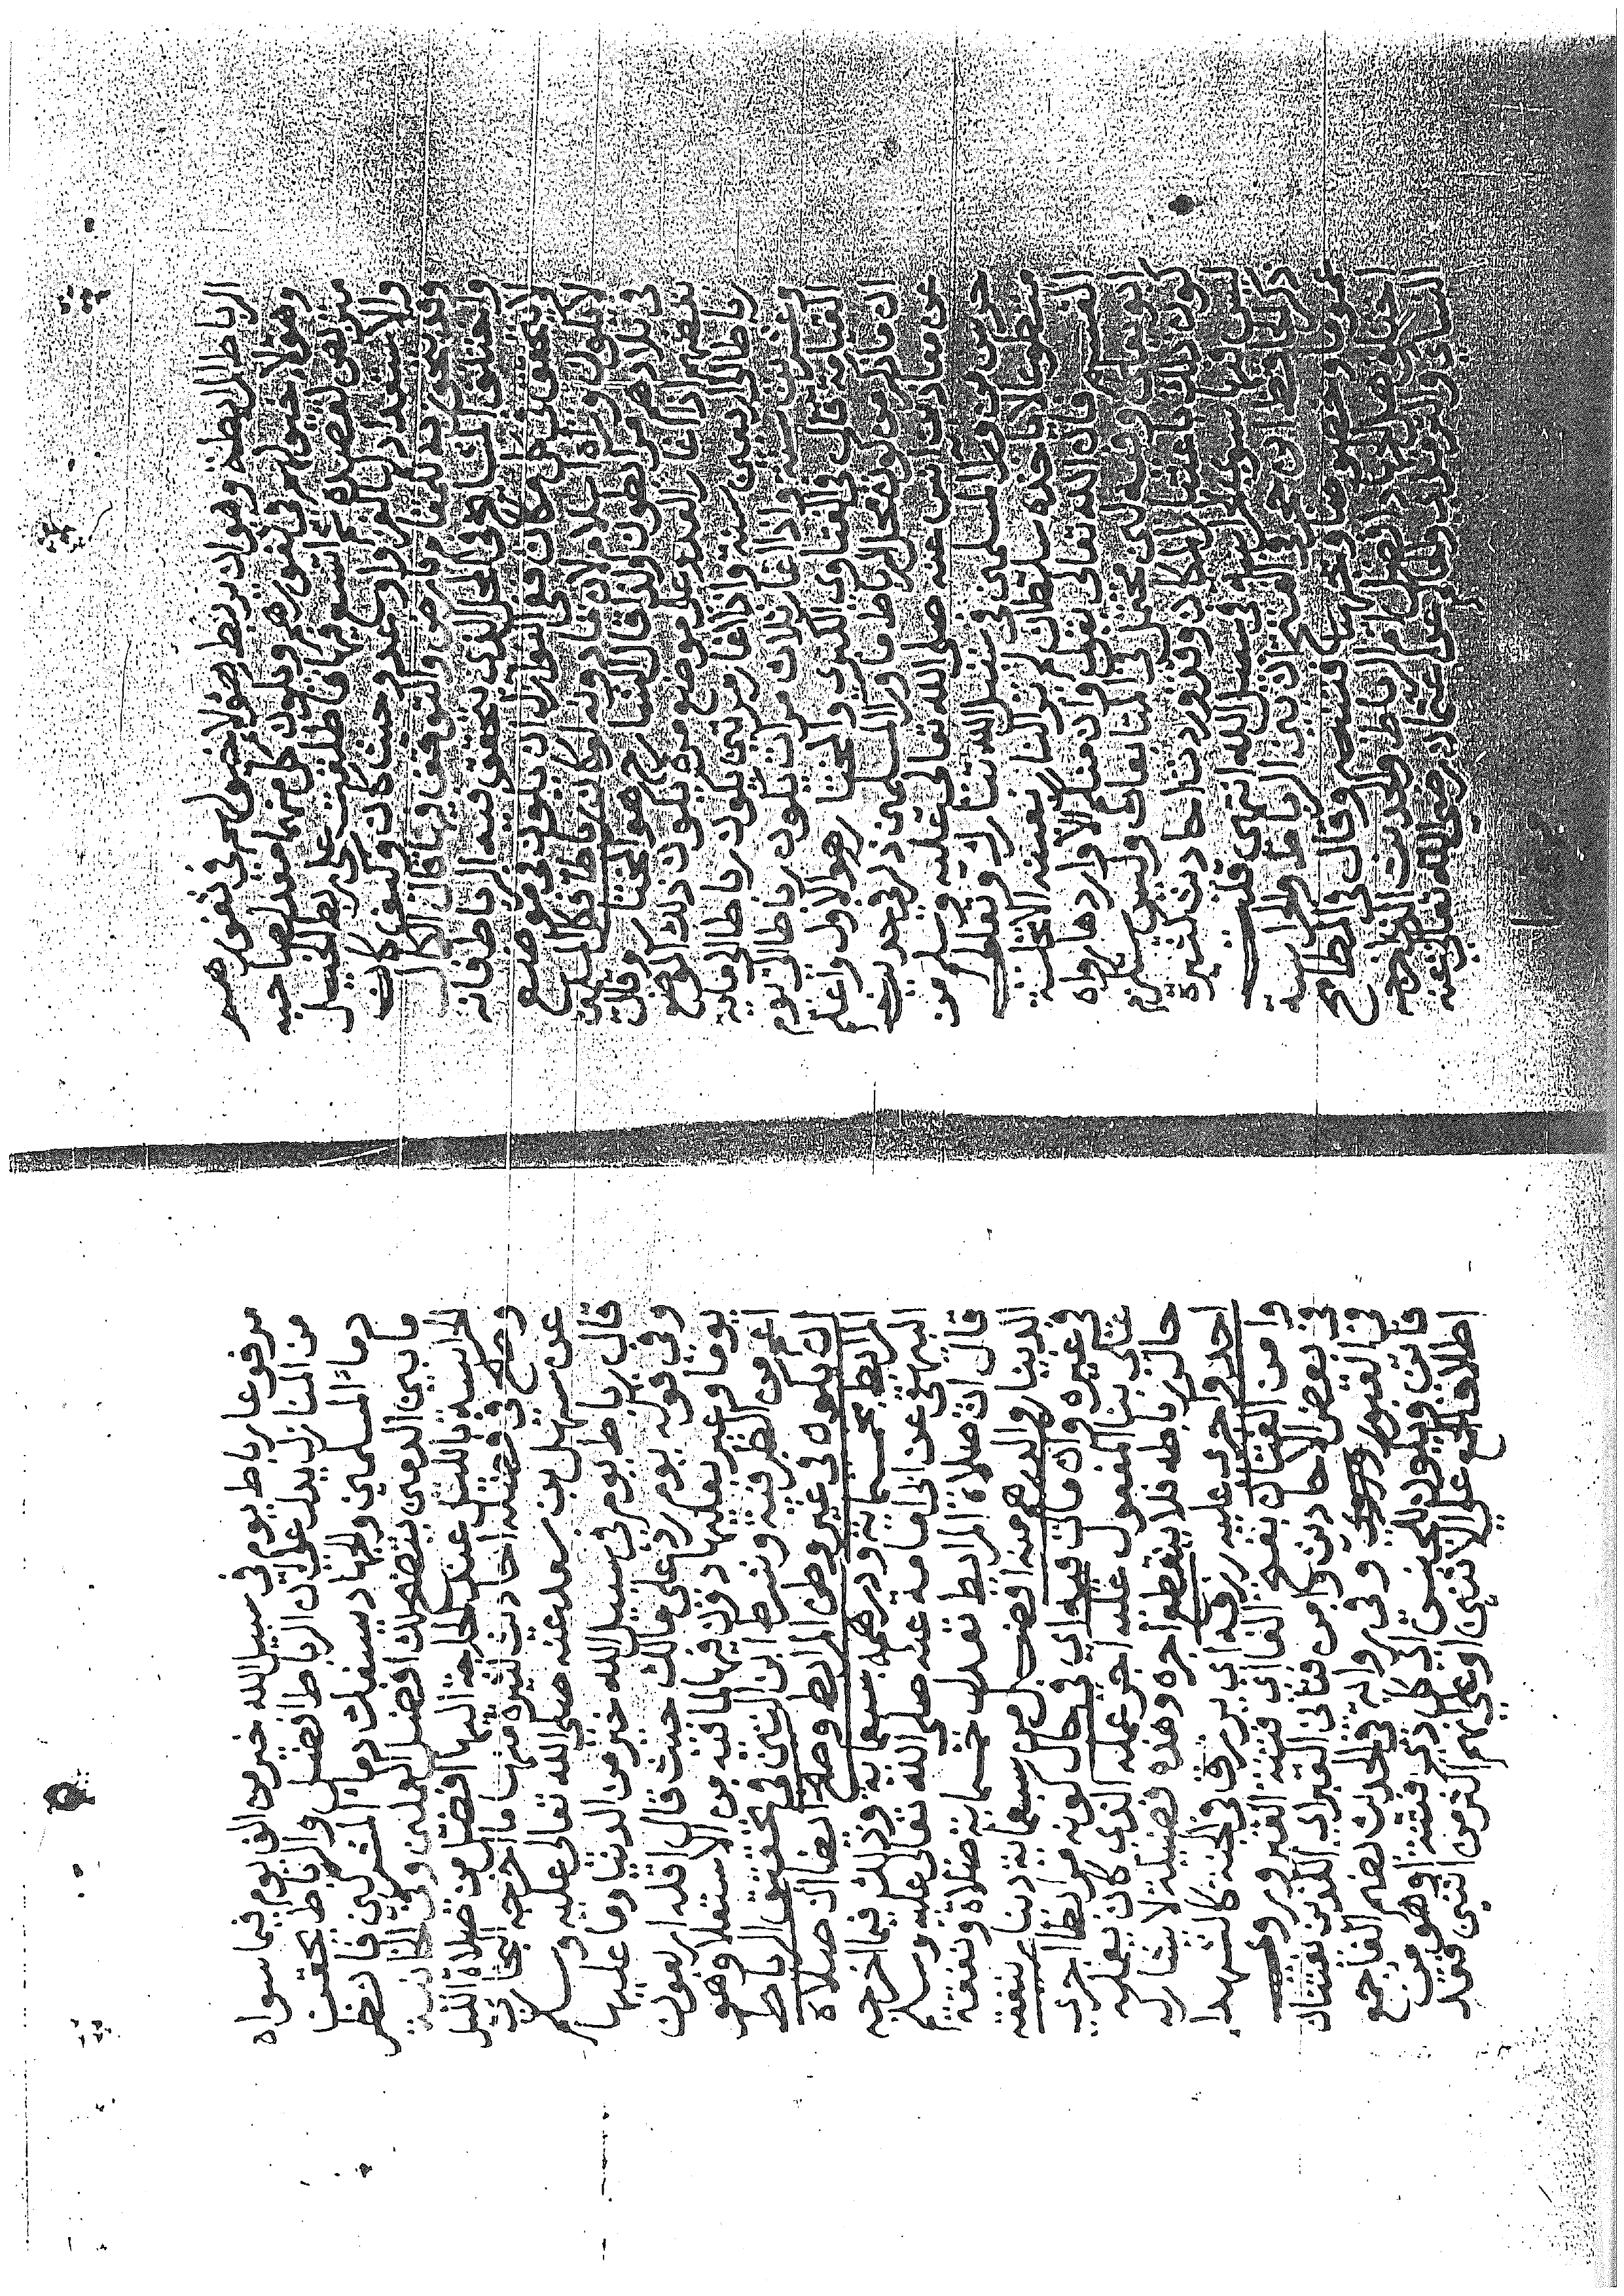 الرباط المرابطة وهو ان يربط هؤلاء خيولهم في ثغورهم
وهؤلاء خيولهم في ثغورهم ويكون كل منهما معد لصاحبه
متربص لقصده ثم اتسع فيها فاطلقت على ربط الخيل
والاستعداد للعدو حيث كان وكيف كانت
وقد يتجوز به للمقام بارض والتوقف فيها قال الكمال
واختلف المشايخ في المحل الذي يتحقق فيه الرباط فانه
لا يتحقق في كل مكان ففي النوازل ان يكون في موضع
لا يكون وراه اسلام لان ما دونه لو كان رباطا فكل المسلمين
في بلادهم مرابطون ولذا قال الشارح هو المختار وقال
بعضهم اذا اغار العدو على موضع مرة يكون ذلك الموضع
رباطا الى اربعين سنة واذا اغار مرتين يكون رباطا الى مايه
وعشرين سنة واذا اغار ثلاث مرات يكون رباطا الى يوم
القيامة قال في الفتاوى الكبرى والمختار هو الاول واعلم
ان ما ذكر من كون محل الرباط ما ورا المسلمين ذكر في حديث
عن معاذ بن انس عنه صلى الله تعالى عليه وسلم من
حرس من ورا المسلمين في سبيل الله تبارك وتعالى
متطوعا لا ياخذه سلطان لم ير النار بعينه الا تحلة
القسم فان الله تعالى يقول وان منكم الا واردها رواه
ابو يعلى وفيه لين محتمل في المتابعات وليس يستلزم
كون ذلك باعتبار المكان فقد وردت احاديث كثيرة
ليس فيها سوى الحراسة في سبيل الله انتهى قلت
ذكر الحافظ ابن حجر في الفتح ان بين الرباط والحراسة
عموما وخصوصا وجهيا فتنبه وقال في المطامح
اختلف هل الجهاد افضل ام الرباط والحديث
النسائي والترمذي رضي الله تعالى عنه
مرفوعا رباط يوم في سبيل الله خير من الف يوم فيما سواه
من المنازل يدل على ان الرباط افضل والرباط بحقن
دماء المسلمين والجهاد بسفك دماء المشركين فانظر
ما بين الدمين يتضح لك افضل العملين وفي الخانية
الحراسة بالليل عند الحاجة اليها افضل من صلاة الليل
وصح في فضله احاديث كثيرة منها ما اخرجه البخاري
عن سهل بن سعد عنه صلى الله تعالى عليه وسلم
قال رباط يوم في سبيل الله خير من الدنيا وما عليها
وفي قوله يوم رد على مالك حيث قال اقله اربعون
يوما وعبر بعليها دون فيها لما فيه من الاستعلا وهو
اعم من الظرفية وشرط ابن التين في تحقيق الرباط
ان يكون في غير وطن المرابط وصح ايضا ان صلاة
المرابط بخمسماية ودرهمه بسبعماية وذلك فيما اخرجه
البيهقي عن ابي امامة عنه صلى الله تعالى عليه وسلم
قال ان صلاة المرابط تعدل خمسماية صلاة ونفقة
الدينار والدرهم منه افضل من سبعماية دينار ينفقه
في غيره وان مات فيه اي في حال كونه مرابطا اجري
مبني بنا المفعول عليه اجر عمله الذي كان يعمله
حال رباطه فلا ينقطع اجره وهذه فضيلة لا يشاركه
احد واجرى عليه رزقه اي يرزق في الجنة كالشهدا
وامن الفتان بفتح الفا اي فتنة القبر وروى
في بعض الاحاديث وامن من فتاني القبر اي اللذين يفتنان
في القبور وفي رواية في الحديث بضم الفا جمع
فاتن ويكون للجنس اي كل ذي فتنة او هو من
اطلاق الجمع على الاثنين او على انهم اكثر من اثنين فقد